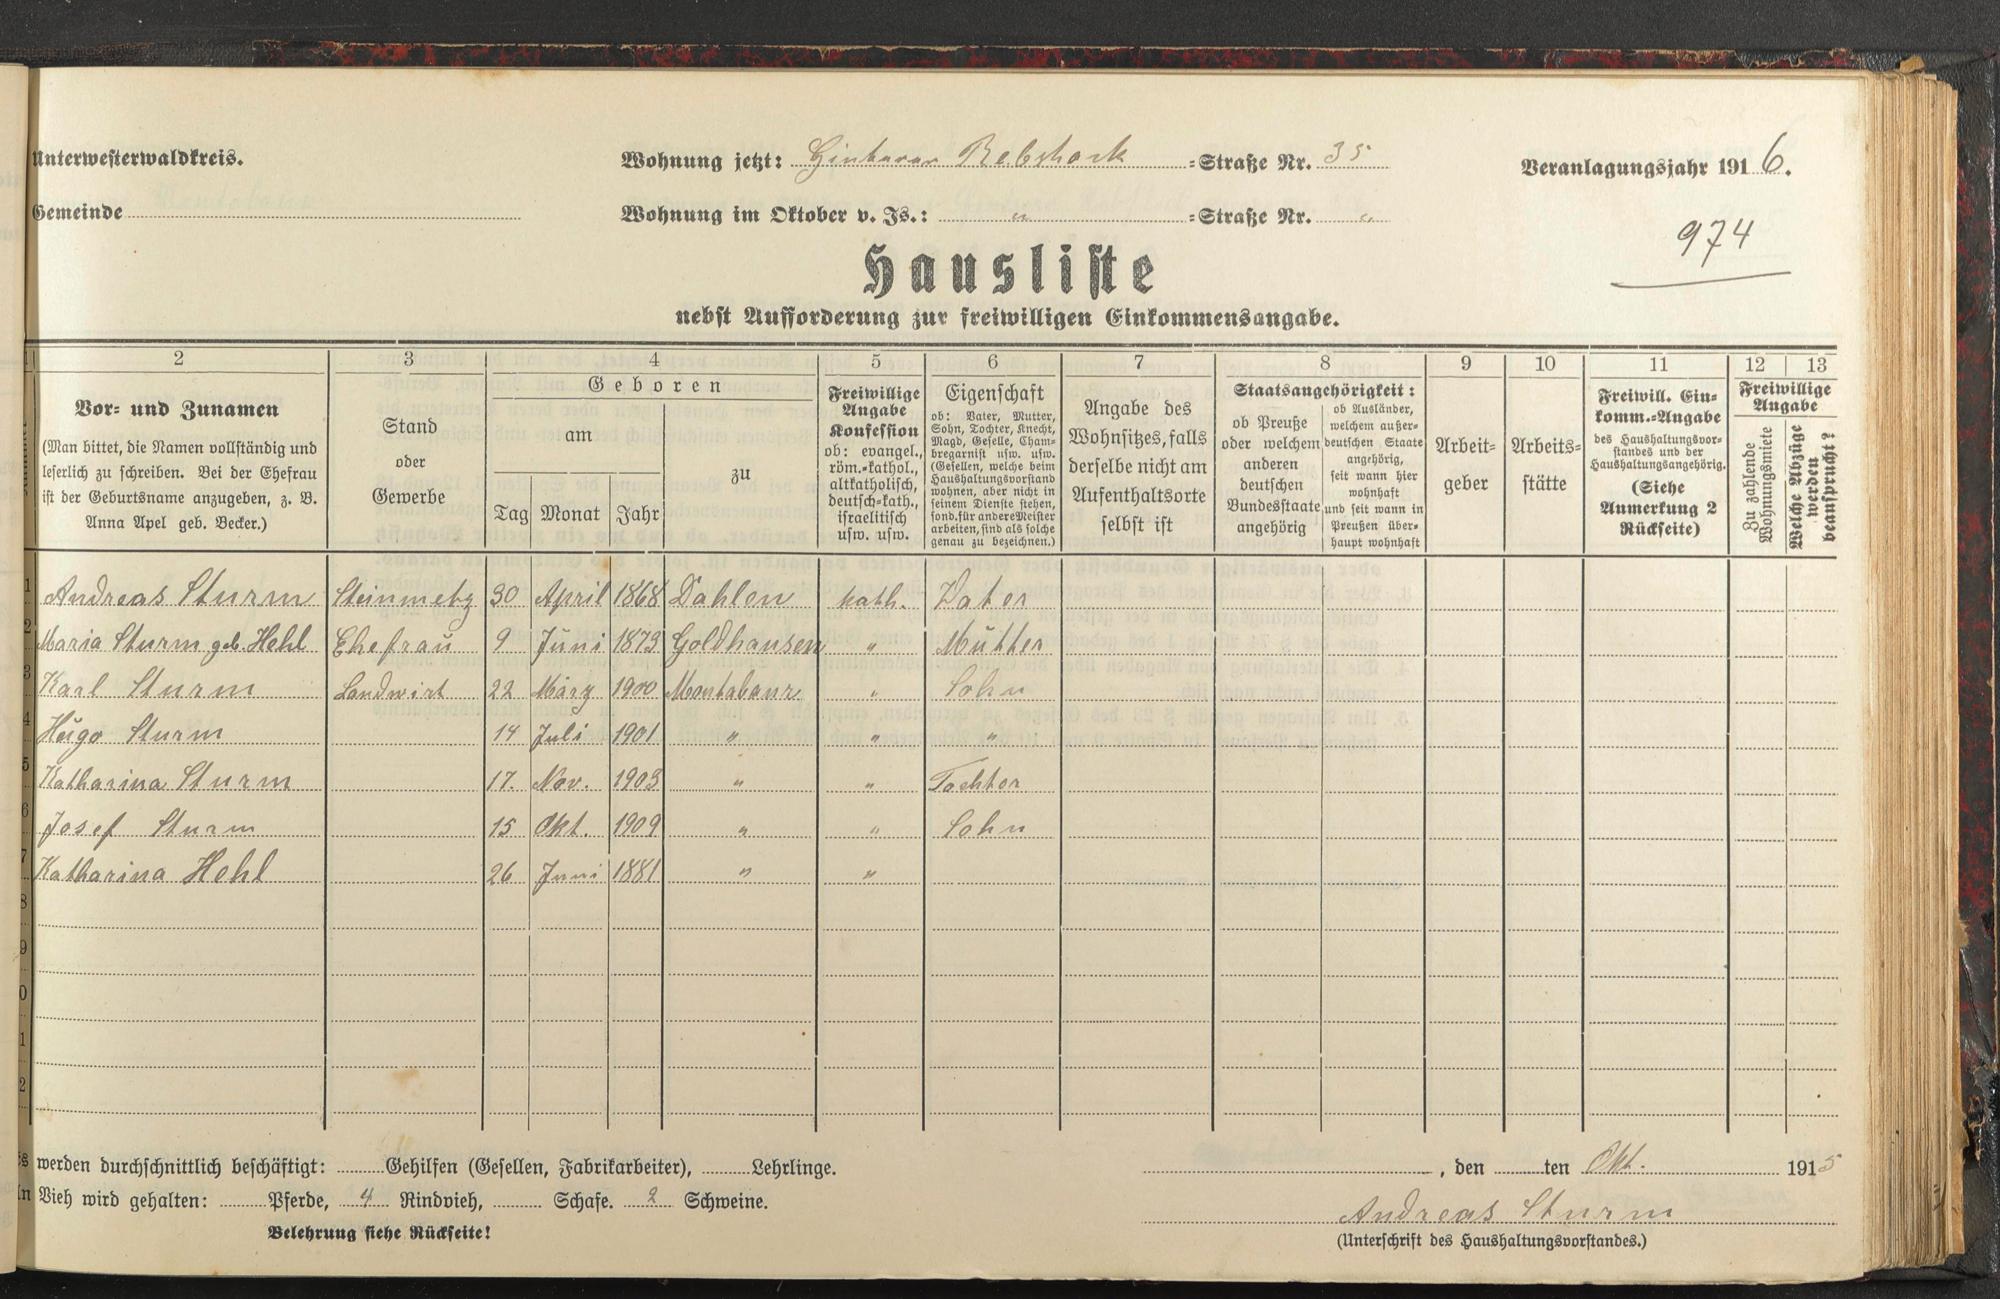 Unterwesterwaldkreis.
Wohnung jetzt: Hinterer Rebstock =Straße Nr. 35
Veranlagungsjahr 1916.
Gemeinde
Wohnung im Oktober v. Js.: " =Straße Nr. "
974
Hausliste
nebst Aufforderung zur freiwilligen Einkommensangabe.
2 3 4 5 6 7 8 9 10 11 12 13
Vor- und Zunamen
(Man bittet, die Namen vollständig und
leserlich zu schreiben. Bei der Ehefrau
ist der Geburtsname anzugeben, z. B.
Anna Apel geb. Becker.)
Stand
oder
Gewerbe
Geboren
am
Tag Monat Jahr
zu
Freiwillige
Angabe
Konfession
ob: evangel.,
röm.-kathol.,
altkatholisch,
deutsch-kath.,
israelitisch
usw. usw.
Eigenschaft
ob: Vater, Mutter,
Sohn, Tochter, Knecht,
Magd, Geselle, Cham-
bregarnist usw. usw.
(Gesellen, welche beim
Haushaltungsvorstand
wohnen, aber nicht in
seinem Dienste stehen,
sond. für andere Meister
arbeiten, sind als solche
genau zu bezeichnen.)
Angabe des
Wohnsitzes, falls
derselbe nicht am
Aufenthaltsorte
selbst ist
Staatsangehörigkeit:
ob Preuße
oder welchem
anderen
deutschen
Bundesstaate
angehörig
ob Ausländer,
welchem außer-
deutschen Staate
angehörig,
seit wann hier
wohnhaft
und seit wann in
Preußen über-
haupt wohnhaft
Arbeit-
geber
Arbeits-
stätte
Freiwill. Ein-
komm.-Angabe
des Haushaltungsvor-
standes und der
Haushaltungsangehörig.
(Siehe
Anmerkung 2
Rückseite)
Freiwillige
Angabe
Zu zahlende
Wohnungsmiete
Welche Abzüge
werden
beansprucht?
1 Andreas Sturm Steinmetz 30 April 1868 Dahlen kath. Vater
2 Maria Sturm geb. Hehl Ehefrau 9 Juni 1873 Goldhausen " Mutter
3 Karl Sturm Landwirt 22 März 1900 Montabaur " Sohn
4 Hugo Sturm 14 Juli 1901 " " "
5 Katharina Sturm 17. Nov. 1903 " " Tochter
6 Josef Sturm 15 Okt. 1909 " " Sohn
7 Katharina Hehl 26 Juni 1881 " "
8
9
0
1
2
werden durchschnittlich beschäftigt: Gehilfen (Gesellen, Fabrikarbeiter), Lehrlinge.
, den ten Okt. 1915
Vieh wird gehalten: Pferde, 4 Rindvieh, Schafe. 2 Schweine.
Andreas Sturm
Belehrung siehe Rückseite!
(Unterschrift des Haushaltungsvorstandes.)